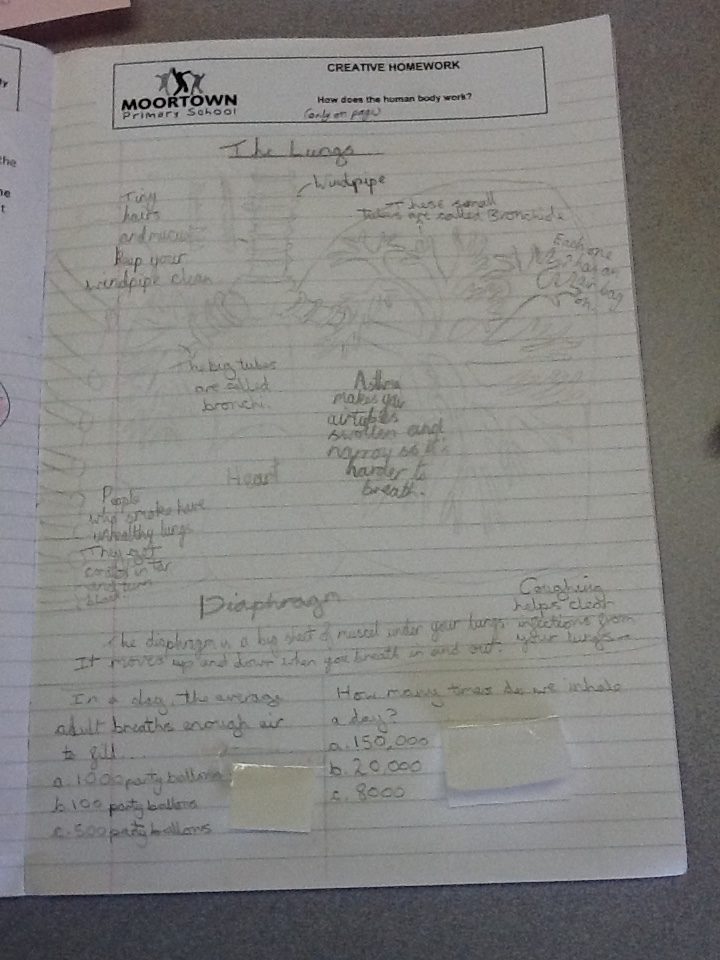 CREATIVE HOMEWORK
MOORTOWN
Primary School
How does the human body work?
(only on page)
The Lungs
Windpipe
Tiny
hairs
and
keep your
windpipe clean
These small
tubes are called Bronchide
Each one
has an
air bag
on
The big tubes
are called
bronchi.
Asthma
makes your
airtubes
swollen and
narrow so it's
harder to
breath.
Heart
People
who smoke have
unhealthy lungs
They get
coated in tar
and turn
black
Diaphragm
Coughing
helps clear
infections from
your lungs
The diaphragm is a big sheet of muscel under your lungs.
It moves up and down when you breath in and out.
In a day, the average
adult breaths enough air
to fill...
a. 1000 party ballons
b. 100 party ballons
c. 500 party ballons
How many times do we inhale
a day?
a. 150,000
b. 20,000
c. 8000
the